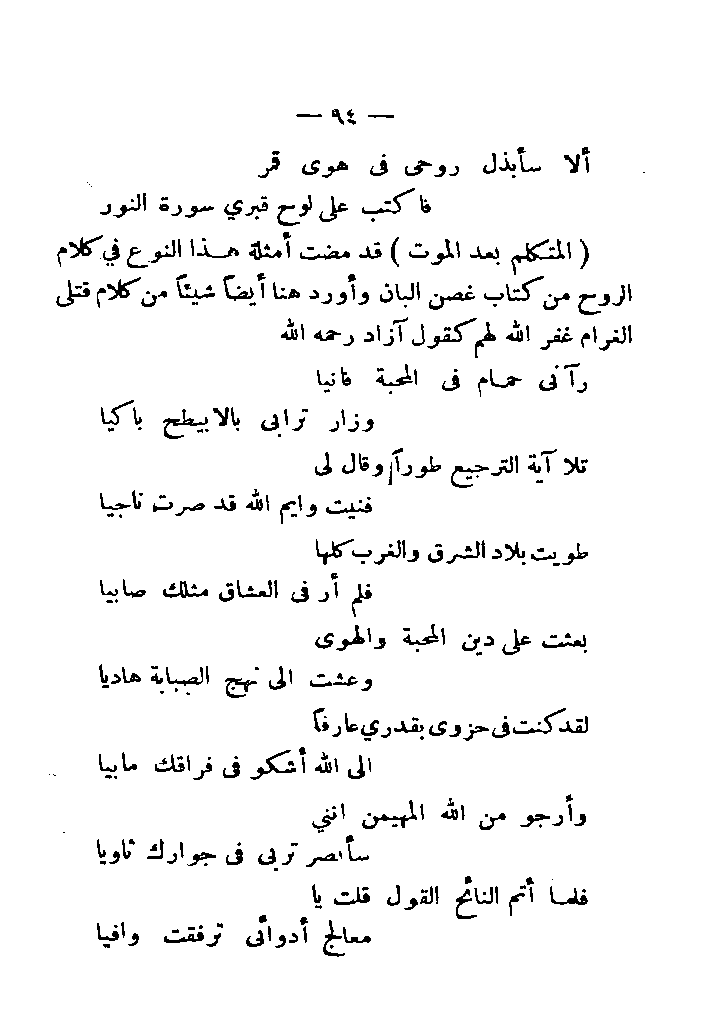 — ٩٤ —
ألا سأبذل روحى فى هوى قمر
فاكتب على لوح قبري سورة النور
( المتكلم بعد الموت ) قد مضت أمثلة هـذا النوع في كلام
الروح من كتاب غصن البان وأورد هنا أيضاً شيئاً من كلام قتلى
الغرام غفر الله لهم كقول آزاد رحمه الله
رآنى حمـام فى المحبة فانيا
وزار ترابى بالابيطح باكيا
تلا آية الترجيع طوراً وقال لى
فنيت وايم الله قد صرت ناجيا
طويت بلاد الشرق والغرب كلها
فلم أر فى العشاق مثلك صابيا
بعثت على دين المحبة والهوى
وعشت الى نهج الصبابة هاديا
لقد كنت فى حزوى بقدري عارفاً
الى الله أشكو فى فراقك مابيا
وأرجو من الله المهيمن انني
سأبصر تربى فى جوارك ثاويا
فلمـا أتم النائح القول قلت يا
معالج أدوائى ترفقت وافيا